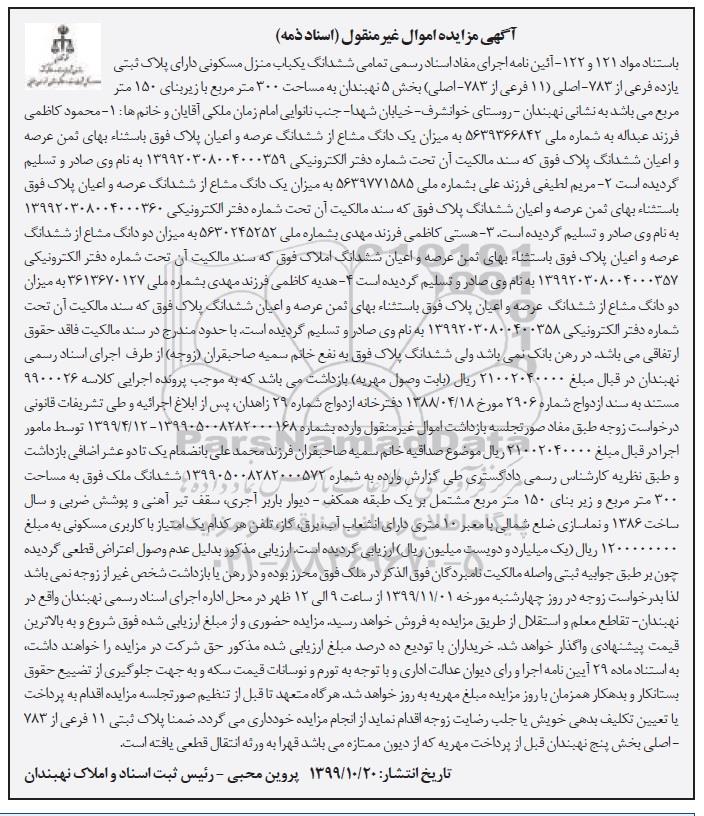 آگهی مزایده اموال غیرمنقول (اسناد ذمه)
باستناد مواد ۱۲۱ و ۱۲۲- آئین نامه اجرای مفاد اسناد رسمی تمامی ششدانگ یکباب منزل مسکونی دارای پلاک ثبتی
یازده فرعی از ۷۸۳-اصلی (۱۱ فرعی از ۷۸۳-اصلی) بخش ۵ نهبندان به مساحت ۳۰۰ متر مربع با زیربنای ۱۵۰ متر
مربع می باشد به نشانی نهبندان - روستای خوانشرف-خیابان شهدا-جنب نانوایی امام زمان ملکی آقایان و خانم ها: ۱-محمود کاظمی
فرزند عبداله به شماره ملی ۵۶۳۹۳۶۶۸۴۲ به میزان یک دانگ مشاع از ششدانگ عرصه و اعیان پلاک فوق باستثناء بهای ثمن عرصه
و اعیان ششدانگ پلاک فوق که سند مالکیت آن تحت شماره دفتر الکترونیکی ۱۳۹۹۲۰۳۰۸۰۰۴۰۰۰۳۵۹ به نام وی صادر و تسلیم
گردیده است ۲- مریم لطیفی فرزند علی بشماره ملی ۵۶۳۹۷۷۱۵۸۵ به میزان یک دانگ مشاع از ششدانگ عرصه و اعیان پلاک فوق
باستثناء بهای ثمن عرصه و اعیان ششدانگ پلاک فوق که سند مالکیت آن تحت شماره دفتر الکترونیکی ۱۳۹۹۲۰۳۰۸۰۰۴۰۰۰۳۶۰
به نام وی صادر و تسلیم گردیده است. ۳-هستی کاظمی فرزند مهدی بشماره ملی ۵۶۳۰۲۴۵۲۵۲ به میزان دو دانگ مشاع از ششدانگ
عرصه و اعیان پلاک فوق باستثناء بهای ثمن عرصه و اعیان ششدانگ املاک فوق که سند مالکیت آن تحت شماره دفتر الکترونیکی
۱۳۹۹۲۰۳۰۸۰۰۴۰۰۰۳۵۷ به نام وی صادر و تسلیم گردیده است ۴-هدیه کاظمی فرزند مهدی بشماره ملی ۳۶۱۳۶۷۰۱۲۷ به میزان
دو دانگ مشاع از ششدانگ عرصه و اعیان پلاک فوق باستثناء بهای ثمن عرصه و اعیان ششدانگ پلاک فوق که سند مالکیت آن تحت
شماره دفتر الکترونیکی ۱۳۹۹۲۰۳۰۸۰۰۴۰۰۰۳۵۸ به نام وی صادر و تسلیم گردیده است. با حدود مندرج در سند مالکیت فاقد حقوق
ارتفاقی می باشد. در رهن بانک نمی باشد ولی ششدانگ پلاک فوق به نفع خانم سمیه صاحبقران (زوجه) از طرف اجرای اسناد رسمی
نهبندان در قبال مبلغ ۲۱۰۰۲۰۴۰۰۰۰ ریال (بابت وصول مهریه) بازداشت می باشد که به موجب پرونده اجرایی کلاسه ۹۹۰۰۰۲۶
مستند به سند ازدواج شماره ۲۹۰۶ مورخ ۱۳۸۸/۰۴/۱۸ دفترخانه ازدواج شماره ۲۹ زاهدان، پس از ابلاغ اجرائیه و طی تشریفات قانونی
درخواست زوجه طبق مفاد صورتجلسه بازداشت اموال غیرمنقول وارده بشماره ۱۳۹۹۰۵۰۰۸۲۸۲۰۰۰۱۶۸-۱۳۹۹/۴/۱۲ توسط مامور
اجرا در قبال مبلغ ۲۱۰۰۲۰۴۰۰۰۰ ریال موضوع صداقیه خانم سمیه صاحبقران فرزند محمد علی بانضمام یک تا دو عشر اضافی بازداشت
و طبق نظریه کارشناس رسمی دادگستری طی گزارش وارده به شماره ۱۳۹۹۰۵۰۰۸۲۸۲۰۰۰۵۷۲ ششدانگ ملک فوق به مساحت
۳۰۰ متر مربع و زیر بنای ۱۵۰ متر مربع مشتمل بر یک طبقه همکف - دیوار باربر آجری، سقف تیر آهنی و پوشش ضربی و سال
ساخت ۱۳۸۶ و نماسازی ضلع شمالی با معبر ۱۰ متری دارای انشعاب آب، برق، گاز، تلفن هر کدام یک امتیاز با کاربری مسکونی به مبلغ
۱۲۰۰۰۰۰۰۰۰ ریال (یک میلیارد و دویست میلیون ریال) ارزیابی گردیده است. ارزیابی مذکور بدلیل عدم وصول اعتراض قطعی گردیده
چون بر طبق جوابیه ثبتی واصله مالکیت نامبردگان فوق الذکر در ملک فوق محرز بوده و در رهن یا بازداشت شخص غیر از زوجه نمی باشد
لذا بدرخواست زوجه در روز چهارشنبه مورخه ۱۳۹۹/۱۱/۰۱ از ساعت ۹ الی ۱۲ ظهر در محل اداره اجرای اسناد رسمی نهبندان واقع در
نهبندان- تقاطع معلم و استقلال از طریق مزایده به فروش خواهد رسید. مزایده حضوری و از مبلغ ارزیابی شده فوق شروع و به بالاترین
قیمت پیشنهادی واگذار خواهد شد. خریداران با تودیع ده درصد مبلغ ارزیابی شده مذکور حق شرکت در مزایده را خواهند داشت،
به استناد ماده ۲۹ آیین نامه اجرا و رای دیوان عدالت اداری و با توجه به تورم و نوسانات قیمت سکه و به جهت جلوگیری از تضییع حقوق
بستانکار و بدهکار همزمان با روز مزایده مبلغ مهریه به روز خواهد شد. هرگاه متعهد تا قبل از تنظیم صورتجلسه مزایده اقدام به پرداخت
یا تعیین تکلیف بدهی خویش یا جلب رضایت زوجه اقدام نماید از انجام مزایده خودداری می گردد. ضمنا پلاک ثبتی ۱۱ فرعی از ۷۸۳
-اصلی بخش پنج نهبندان قبل از پرداخت مهریه که از دیون ممتازه می باشد قهرا به ورثه انتقال قطعی یافته است.
تاریخ انتشار: ۱۳۹۹/۱۰/۲۰ پروین محبی - رئیس ثبت اسناد و املاک نهبندان
ParsNamadData
پایگاه اطلاع رسانی مناقصه و مزایده
۰۲۱-۸۸۳۴۹۶۷۰-۵